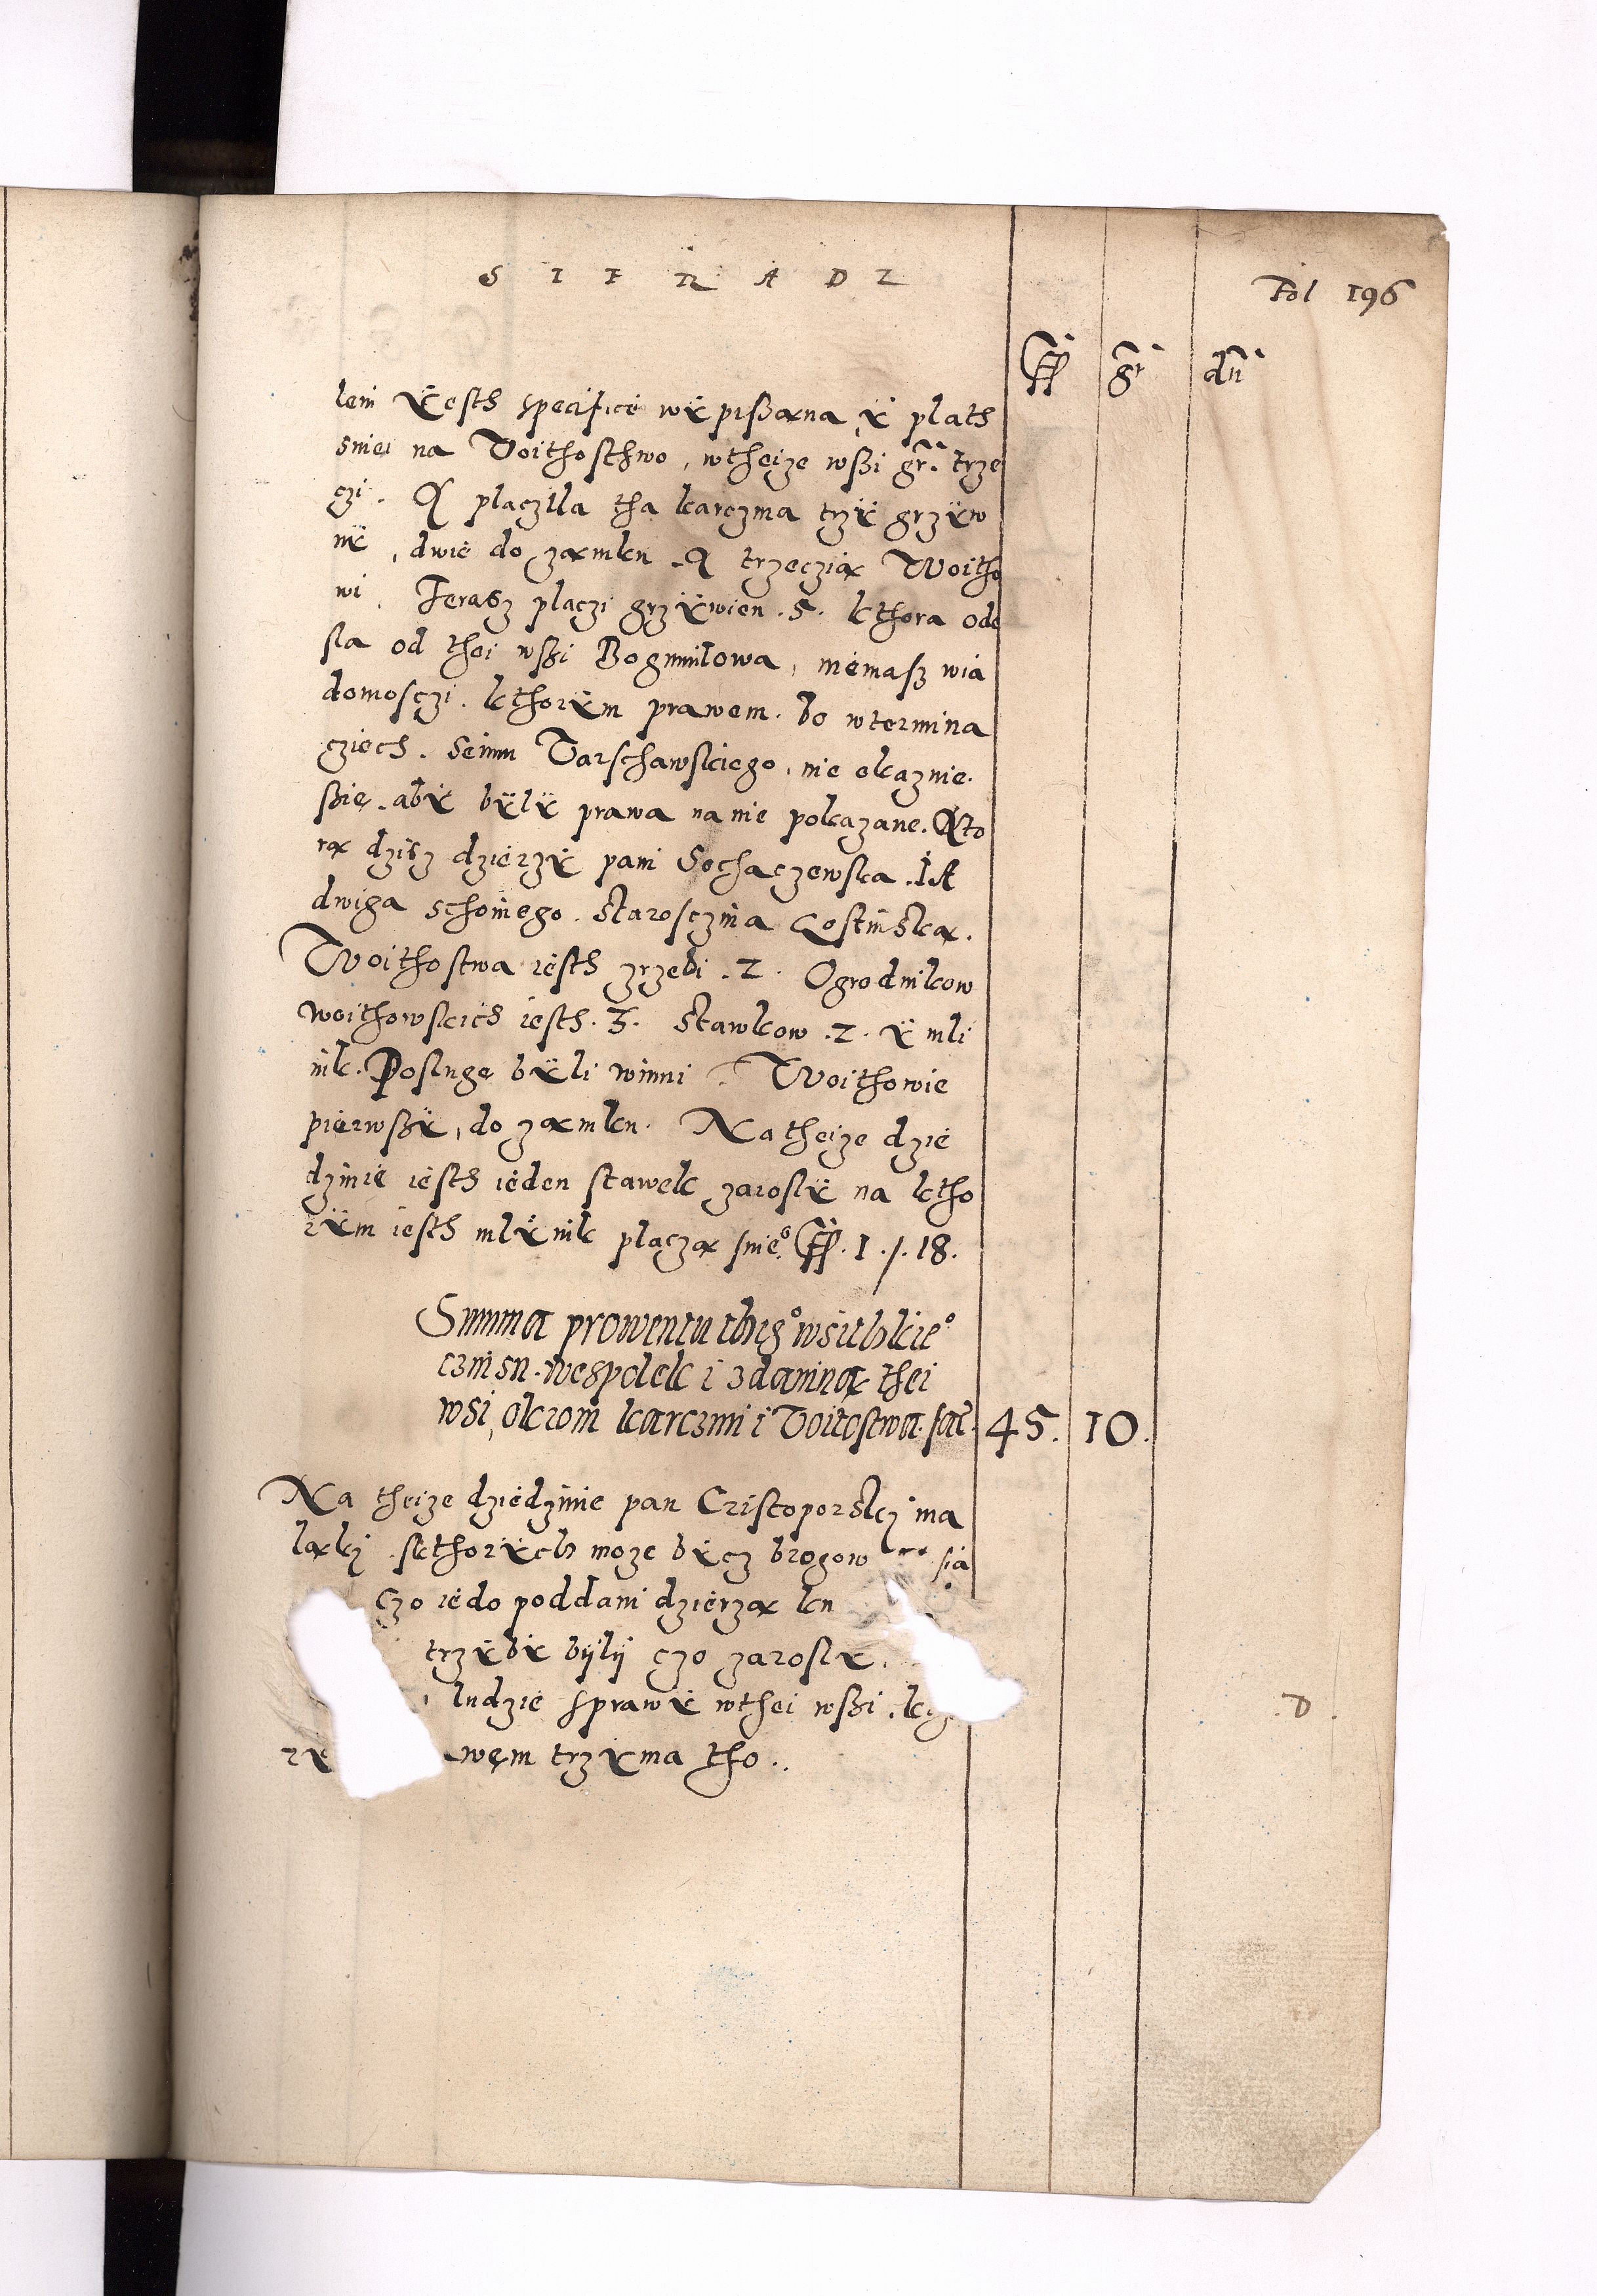 SIERADZ
Fol 196
ff gr dn
lem ÿesth specifice wÿpißana ÿ plath
snie na Woithosthwo, wtheize wßi gr. trze
czi. A placzila tha karczma trzÿ grzÿw
nÿ, dwie do zamku A trzeczią Woitho
wi. Terasz placzi grzÿwien .5. kthora ode
sla od thei wßi Bogumilowa, niemasz wia
domosczi kthorÿm prawem. bo wtermina
cziech. Seimu Varschawskiego, nie okaznie.
ßie. abÿ bÿlÿ prawa na nie pokazane. Kto
rą dzisz dzierzÿ pani Sochaczewska. IA
dwiga schoniego. Starosczina Gostinska.
Woithostwa iesth zrzebi .2. Ogrodnikow
woithowskich iesth .3. Stawkow .2. ÿ mli
nik. Poslugę bÿli winni. Woithowie
pierwßÿ, do zamku. Na theize dzie
dzinie iesth ieden stawek zaroslÿ na ktho
rÿm iesth mlÿnik placzą snie° ff. 1. /. 18.
Summa prowentu theg° wsithkie°
czinsu. wespolek i zdaniną thei
wsi, okrom karczmi i Voitostwa. fac. 45. 10.
Na theize dziedzinie pan Cristoporski ma
ląki skthorÿch moze bÿcz brogow sia
czo iedo poddani dzierzą ku
trzÿ bÿ bÿlÿ czo zaroslÿ.
ludzie sprawÿ wthei wßi.
rÿ wem trzÿma tho..